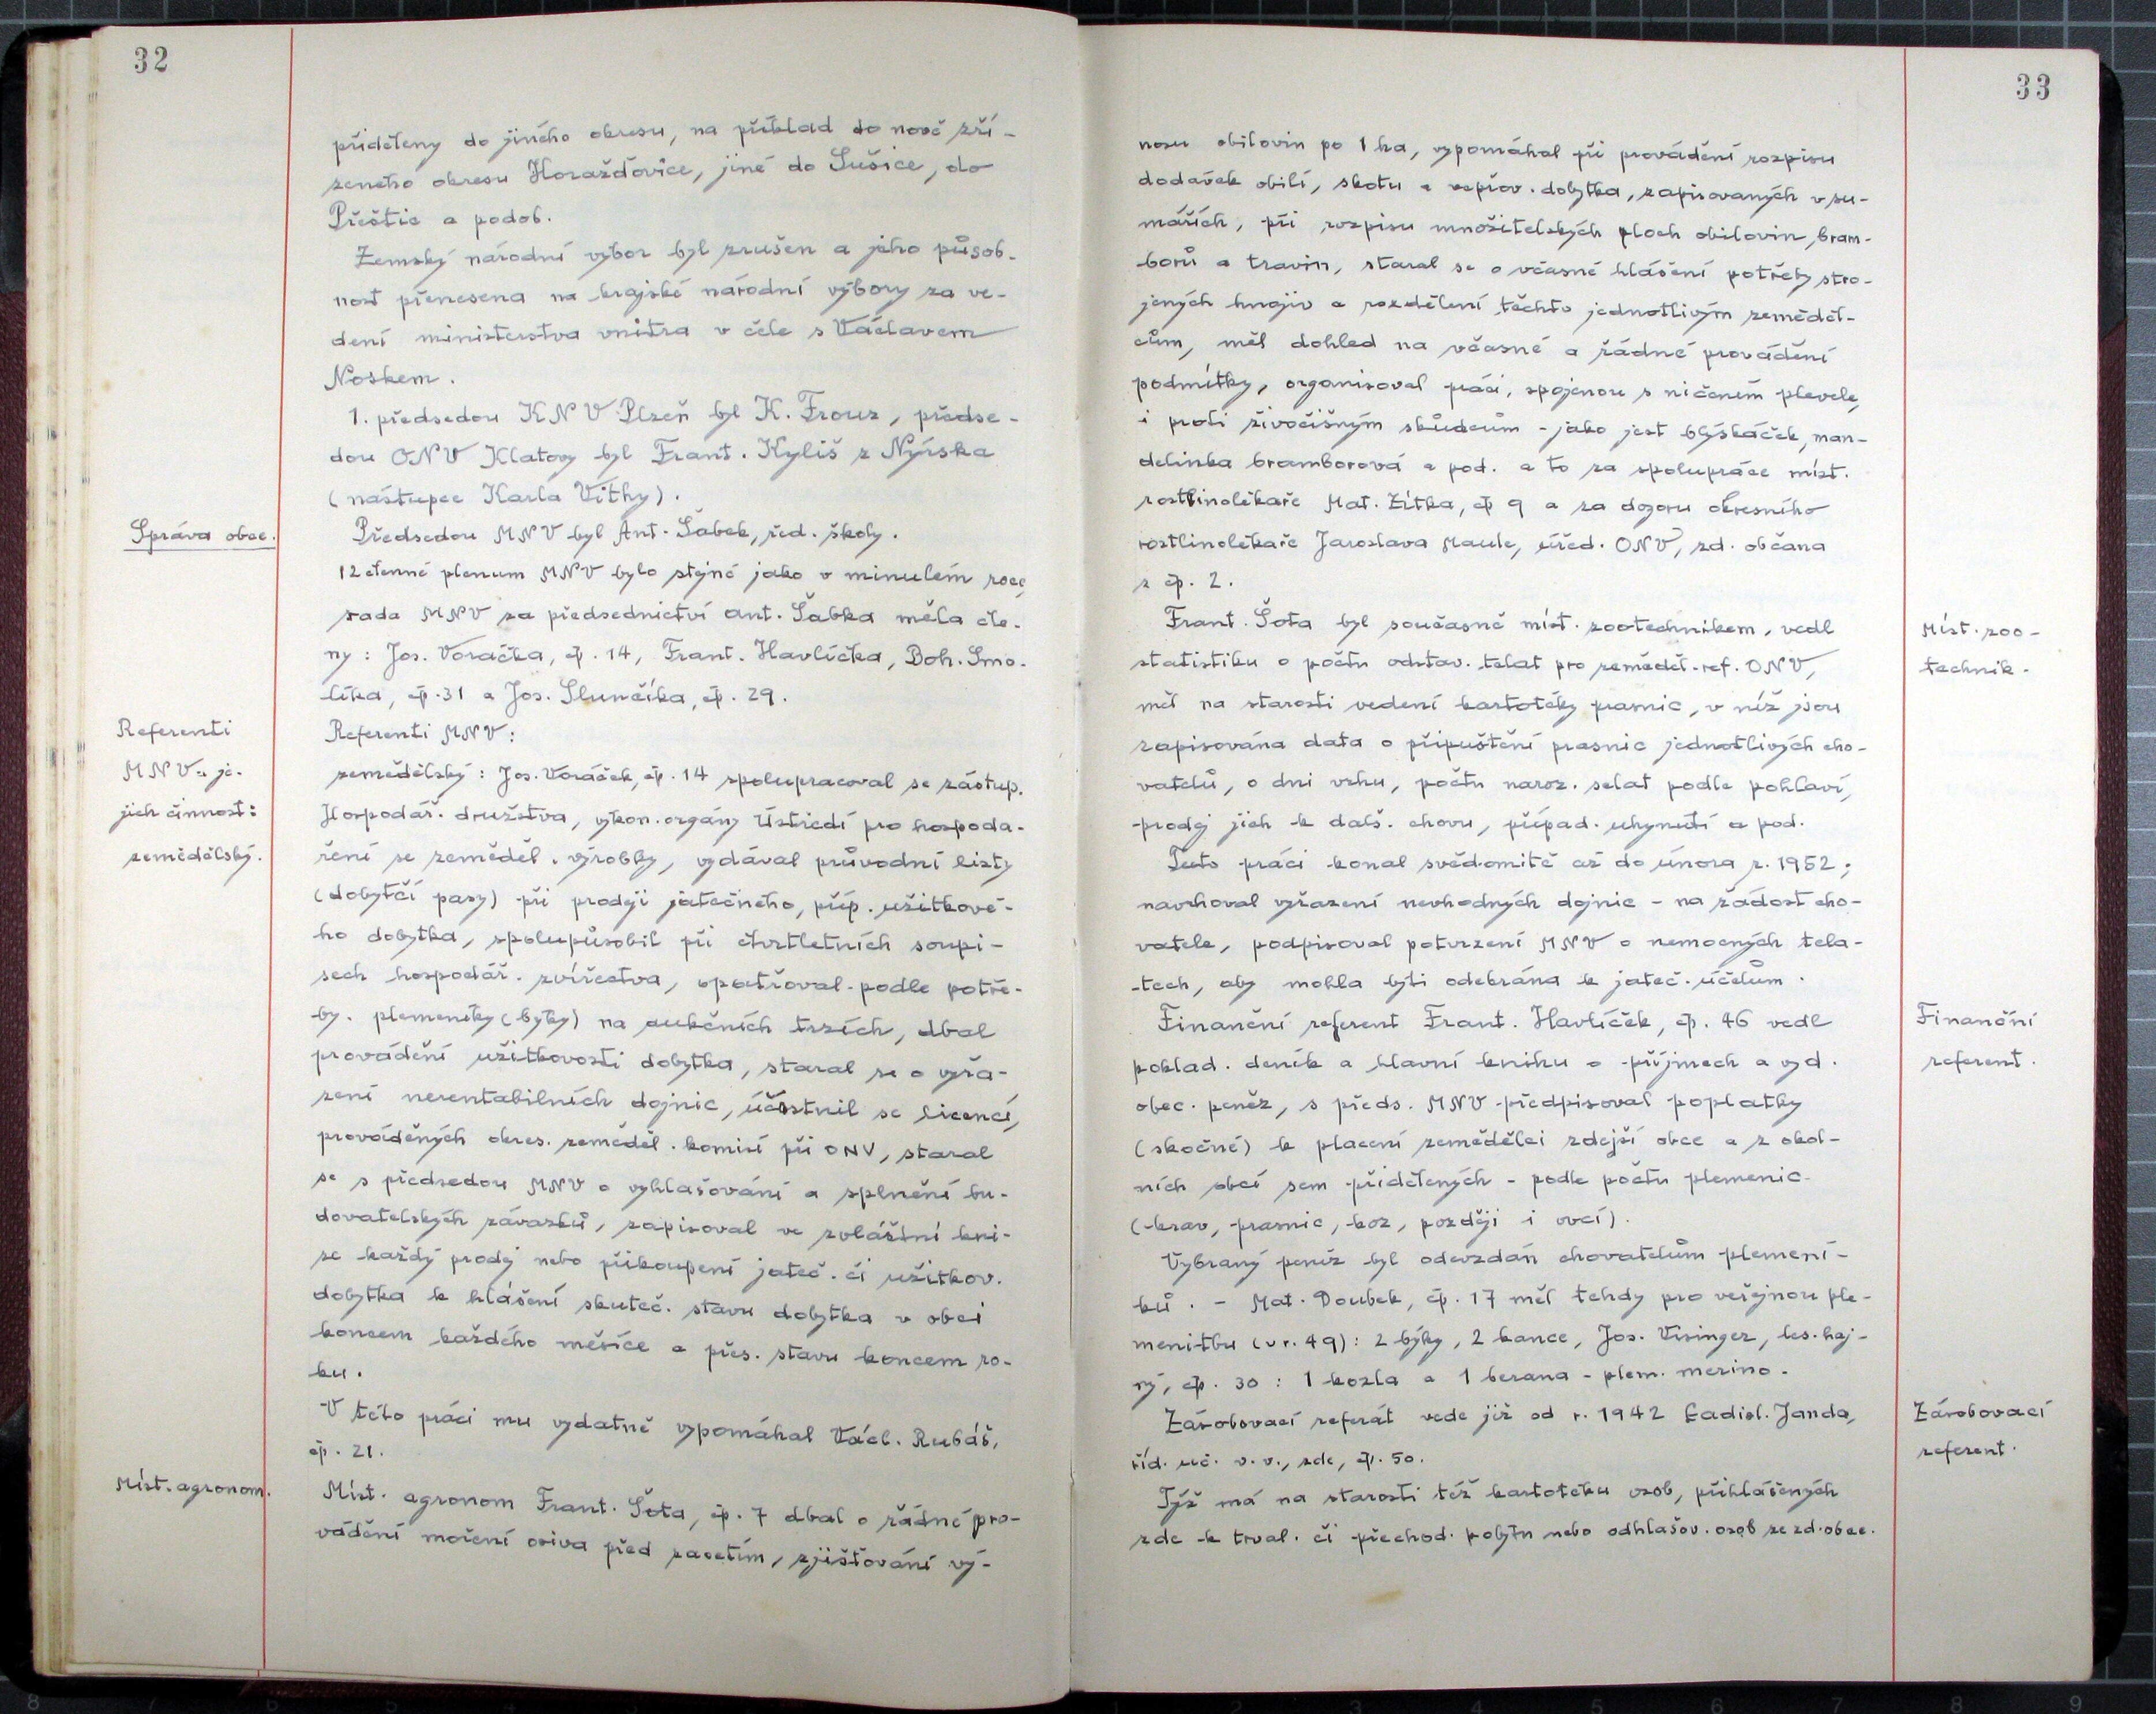 32
přiděleny do jiného okresu, na příklad do nově zří-
zeného okresu Horažďovice, jiné do Sušice, do
Přeštic a podob.
Zemský národní výbor byl zrušen a jeho působ-
nost přenesena na krajské národní výbory za ve-
dení ministerstva vnitra v čele s Václavem
Noskem.
1. předsedou KNV Plzeň byl K. Frouz, předse-
dou ONV Klatovy byl Frant. Kyliš z Nýrska
(nástupce Karla Vithy).
Správa obce.
Předsedou MNV byl Ant. Šabek, řed. školy.
12 členné plenum MNV bylo stejné jako v minulém roce,
rada MNV za předsednictví Ant. Šabka měla čle-
ny: Jos. Voráčka, čp. 14, Frant. Havlíčka, Boh. Smo-
líka, čp. 31 a Jos. Slunčíka, čp. 29.
Referenti
MNV a je-
jich činnost:
zemědělský.
Referenti MNV:
zemědělský: Jos. Voráček, čp. 14 spolupracoval se zástup.
Hospodář. družstva, výkon. orgány Ústředí pro hospoda-
ření se zeměděl. výrobky, vydával průvodní listy
(dobytčí pasy) při prodeji jatečného, příp. užitkové-
ho dobytka, spolupůsobil při čtvrtletních soupi-
sech hospodář. zvířectva, opatřoval podle potře-
by plemeníky (býky) na aukčních trzích, dbal
provádění užitkovosti dobytka, staral se o vyřa-
zení nerentabilních dojnic, účastnil se licencí,
prováděných okres. zeměděl. komisí při ONV, staral
se s předsedou MNV o vyhlašování a splnění bu-
dovatelských závazků, zapisoval ve zvláštní kni-
ze každý prodej nebo přikoupení jateč. či užitkov.
dobytka k hlášení skuteč. stavu dobytka v obci
koncem každého měsíce a přes. stavu koncem ro-
ku.
V této práci mu vydatně vypomáhal Václ. Rubáš,
čp. 21.
Míst. agronom.
Míst. agronom Frant. Šota, čp. 7 dbal o řádné pro-
vádění moření osiva před zasetím, zjišťování vý-
33
nosu obilovin po 1 ha, vypomáhal při provádění rozpisu
dodávek obilí, skotu a vepřov. dobytka, zapisovaných v su-
mářích, při rozpisu množitelských ploch obilovin, bram-
borů a travin, staral se o včasné hlášení potřeby stro-
jených hnojiv a rozdělení těchto jednotlivým zeměděl-
cům, měl dohled na včasné a řádné provádění
podmítky, organisoval práci, spojenou s ničením plevele,
i proti živočišným škůdcům - jako jest blýskáček, man-
delinka bramborová a pod. a to za spolupráce míst.
rostlinolékaře Mat. Zítka, čp 9 a za dozoru okresního
rostlinolékaře Jaroslava Maule, úřed. ONV, zd. občana
z čp. 2.
Míst. zoo-
technik.
Frant. Šota byl současně míst. zootechnikem, vedl
statistiku o počtu odstav. telat pro zeměděl. ref. ONV,
měl na starosti vedení kartotéky prasnic, v níž jsou
zapisována data o připuštění prasnic jednotlivých cho-
vatelů, o dni vrhu, počtu naroz. selat podle pohlaví,
prodej jich k dalš. chovu, případ. uhynutí a pod.
Tuto práci konal svědomitě až do února r. 1952;
navrhoval vyřazení nevhodných dojnic - na žádost cho-
vatele, podpisoval potvrzení MNV o nemocných tela-
tech, aby mohla býti odebrána k jateč. účelům.
Finanční
referent.
Finanční referent Frant. Havlíček, čp. 46 vedl
poklad. deník a hlavní knihu o příjmech a vyd.
obec. peněz, s předs. MNV předpisoval poplatky
(skočné) k placení zemědělci zdejší obce a z okol-
ních obcí sem přidělených - podle počtu plemenic
(krav, prasnic, koz, později i ovcí).
Vybraný peníz byl odevzdán chovatelům plemení-
ků. - Mat. Doubek, čp. 17 měl tehdy pro veřejnou ple-
menitbu (v r. 49): 2 býky, 2 kance, Jos. Visinger, les. haj-
ný, čp. 30: 1 kozla a 1 berana - plem. merino.
Zásobovací
referent.
Zásobovací referát vede již od r. 1942 Ladisl. Janda,
říd. uč. v. v., zde, čp. 50.
Týž má na starosti též kartotéku osob, přihlášených
zde k trval. či přechod. pobytu nebo odhlašov. osob ze zd. obce.